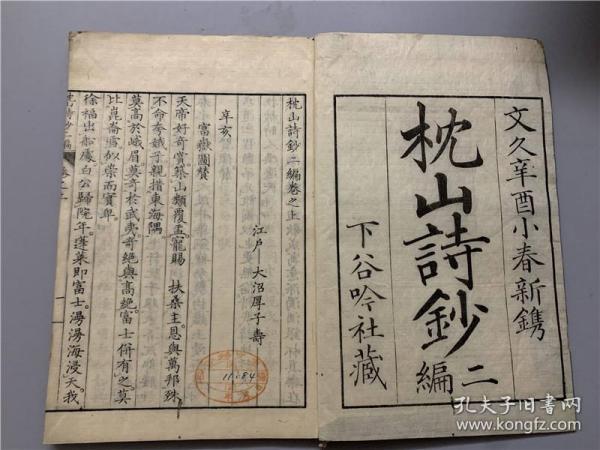 文久辛酉小春新鐫
枕山詩鈔二編
下谷吟社藏
枕山詩鈔二編卷之上
江戶 大沼厚子壽
辛亥
富嶽圖贊
天帝好奇賞築山類覆盂寵賜扶桑主恩與萬邦殊
不命夸娥子親措東海隅
莫高於峨眉莫奇於武夷奇絕與高絕富士併有之莫
比崑崙為似崇而實卑
徐福出船處白公歸院年蓬萊即富士湯湯海浸天我
11684
孔夫子旧书网
www.kongfz.com